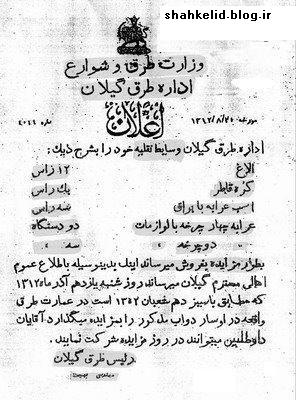 shahkelid-blog.ir
وزارت طرق و شوارع
اداره طرق گیلان
اعلان
مورخه ۱۳۱۲/۸/۲۰
نمره ۴۰۴۴
اداره طرق گیلان وسایط نقلیه خود را بشرح ذیل:
الاغ ۱۲ راس
کره قاطر یك راس
اسب عرابه با یراق سه راس
عرابه چهار چرخه با لوازمات دو دستگاه
〃 دو چرخه سه 〃
بطور مزایده بفروش میرساند اینك بدینوسیله باطلاع عموم
اهالی محترم گیلان میرساند روز شنبه یازدهم آذر ماه ۱۳۱۲
که مطابق با سیزدهم شعبان ۱۳۵۲ است در عمارت طرق
واقعه در اوسار دواب مذکور را بمزایده میگذارد آقایان
داوطلبین میتوانند در روز مزایده شرکت نمایند.
رئیس طرق گیلان
مهندس